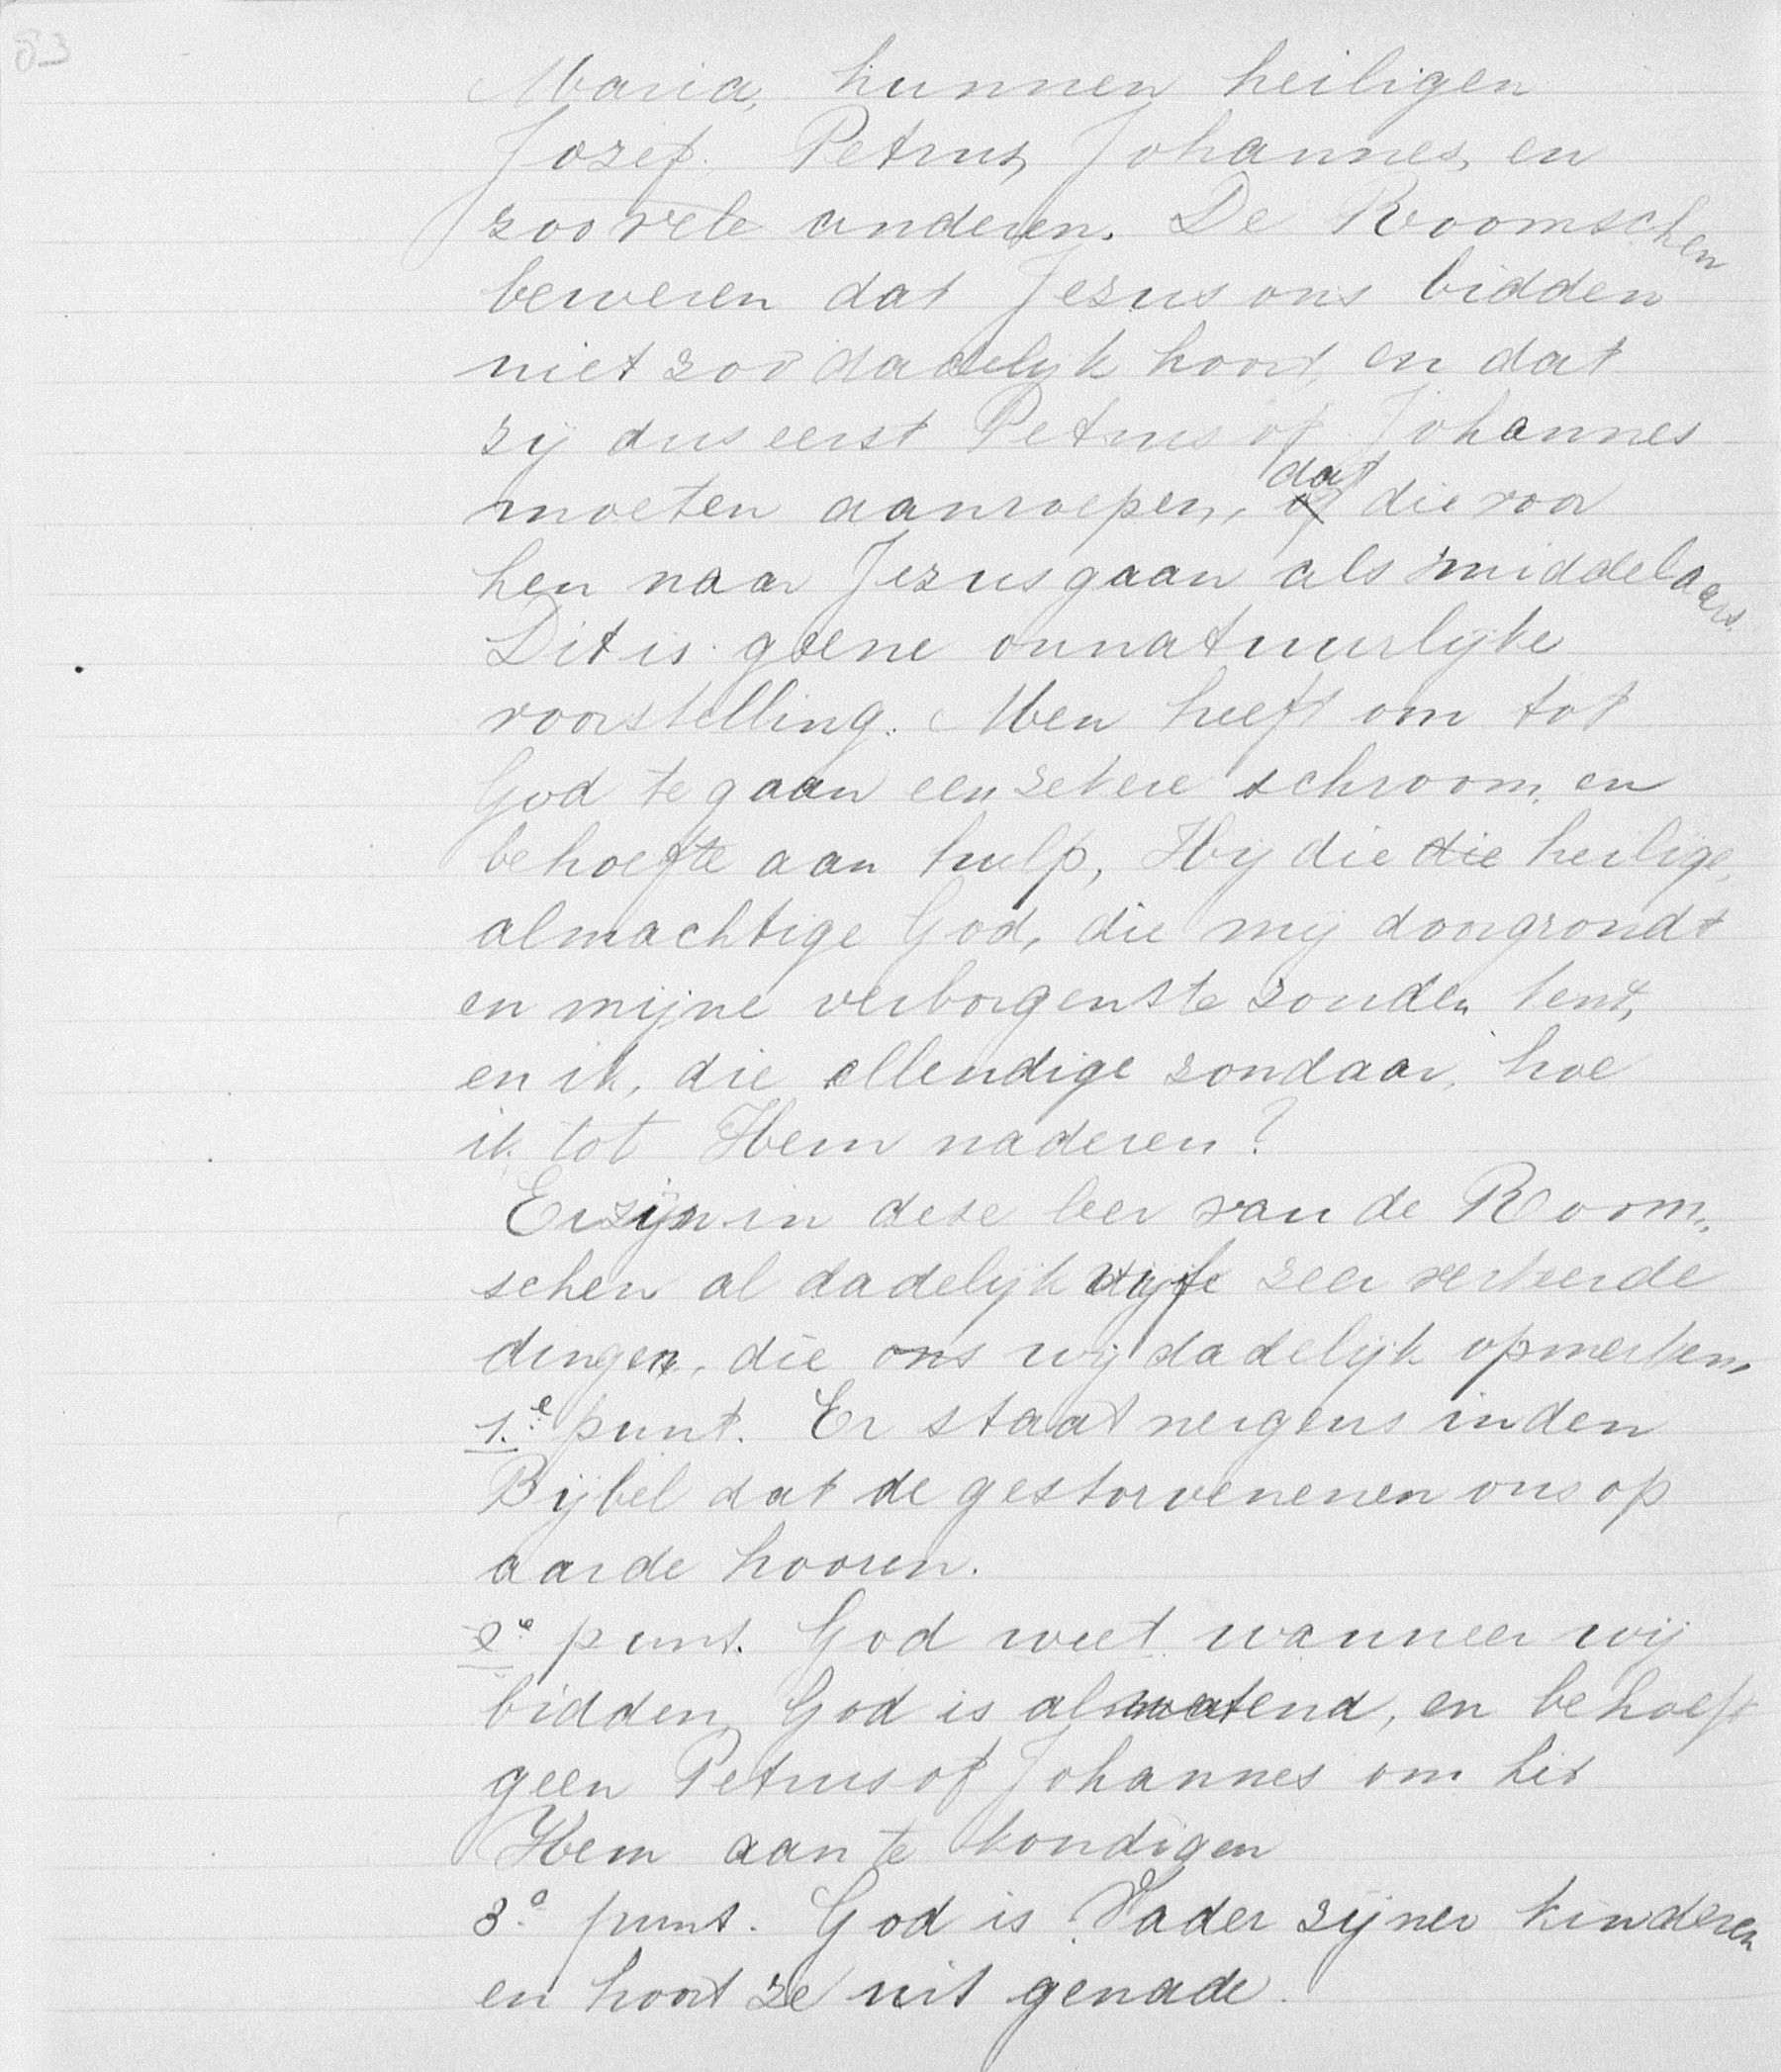 83
Maria, hunnen heiligen
Jozef, Petrus, Johannes, en
zoo vele anderen. De Roomschen
beweren dat Jezus ons bidden
niet zoo dadelijk hoort, en dat
zij dus eerst Petrus of Johannes
moeten aanroepen, dat die voor
hen naar Jezus gaan als middelaars.
Dit is geene onnatuurlijke
voorstelling. Men heeft om tot
God te gaan een zekere schroom, en
behoefte aan hulp, Hij die die heilige,
almachtige God, die mij doorgrondt
en mijne verborgenste zonden kent,
en ik, die ellendige zondaar, hoe
ik tot Hem naderen?
Er zijn in deze leer van de Room-
schen al dadelijk vijf zeer verkeerde
dingen, die ons wij dadelijk opmerken,
1.e punt. Er staat nergens in den
Bijbel dat de gestorvenenen ons op
aarde hooren.
2e punt. God weet wanneer wij
bidden, God is alwetend, en behoeft
geen Petrus of Johannes om het
Hem aan te kondigen
3e punt. God is Vader zijner kinderen
en hoort ze uit genade.